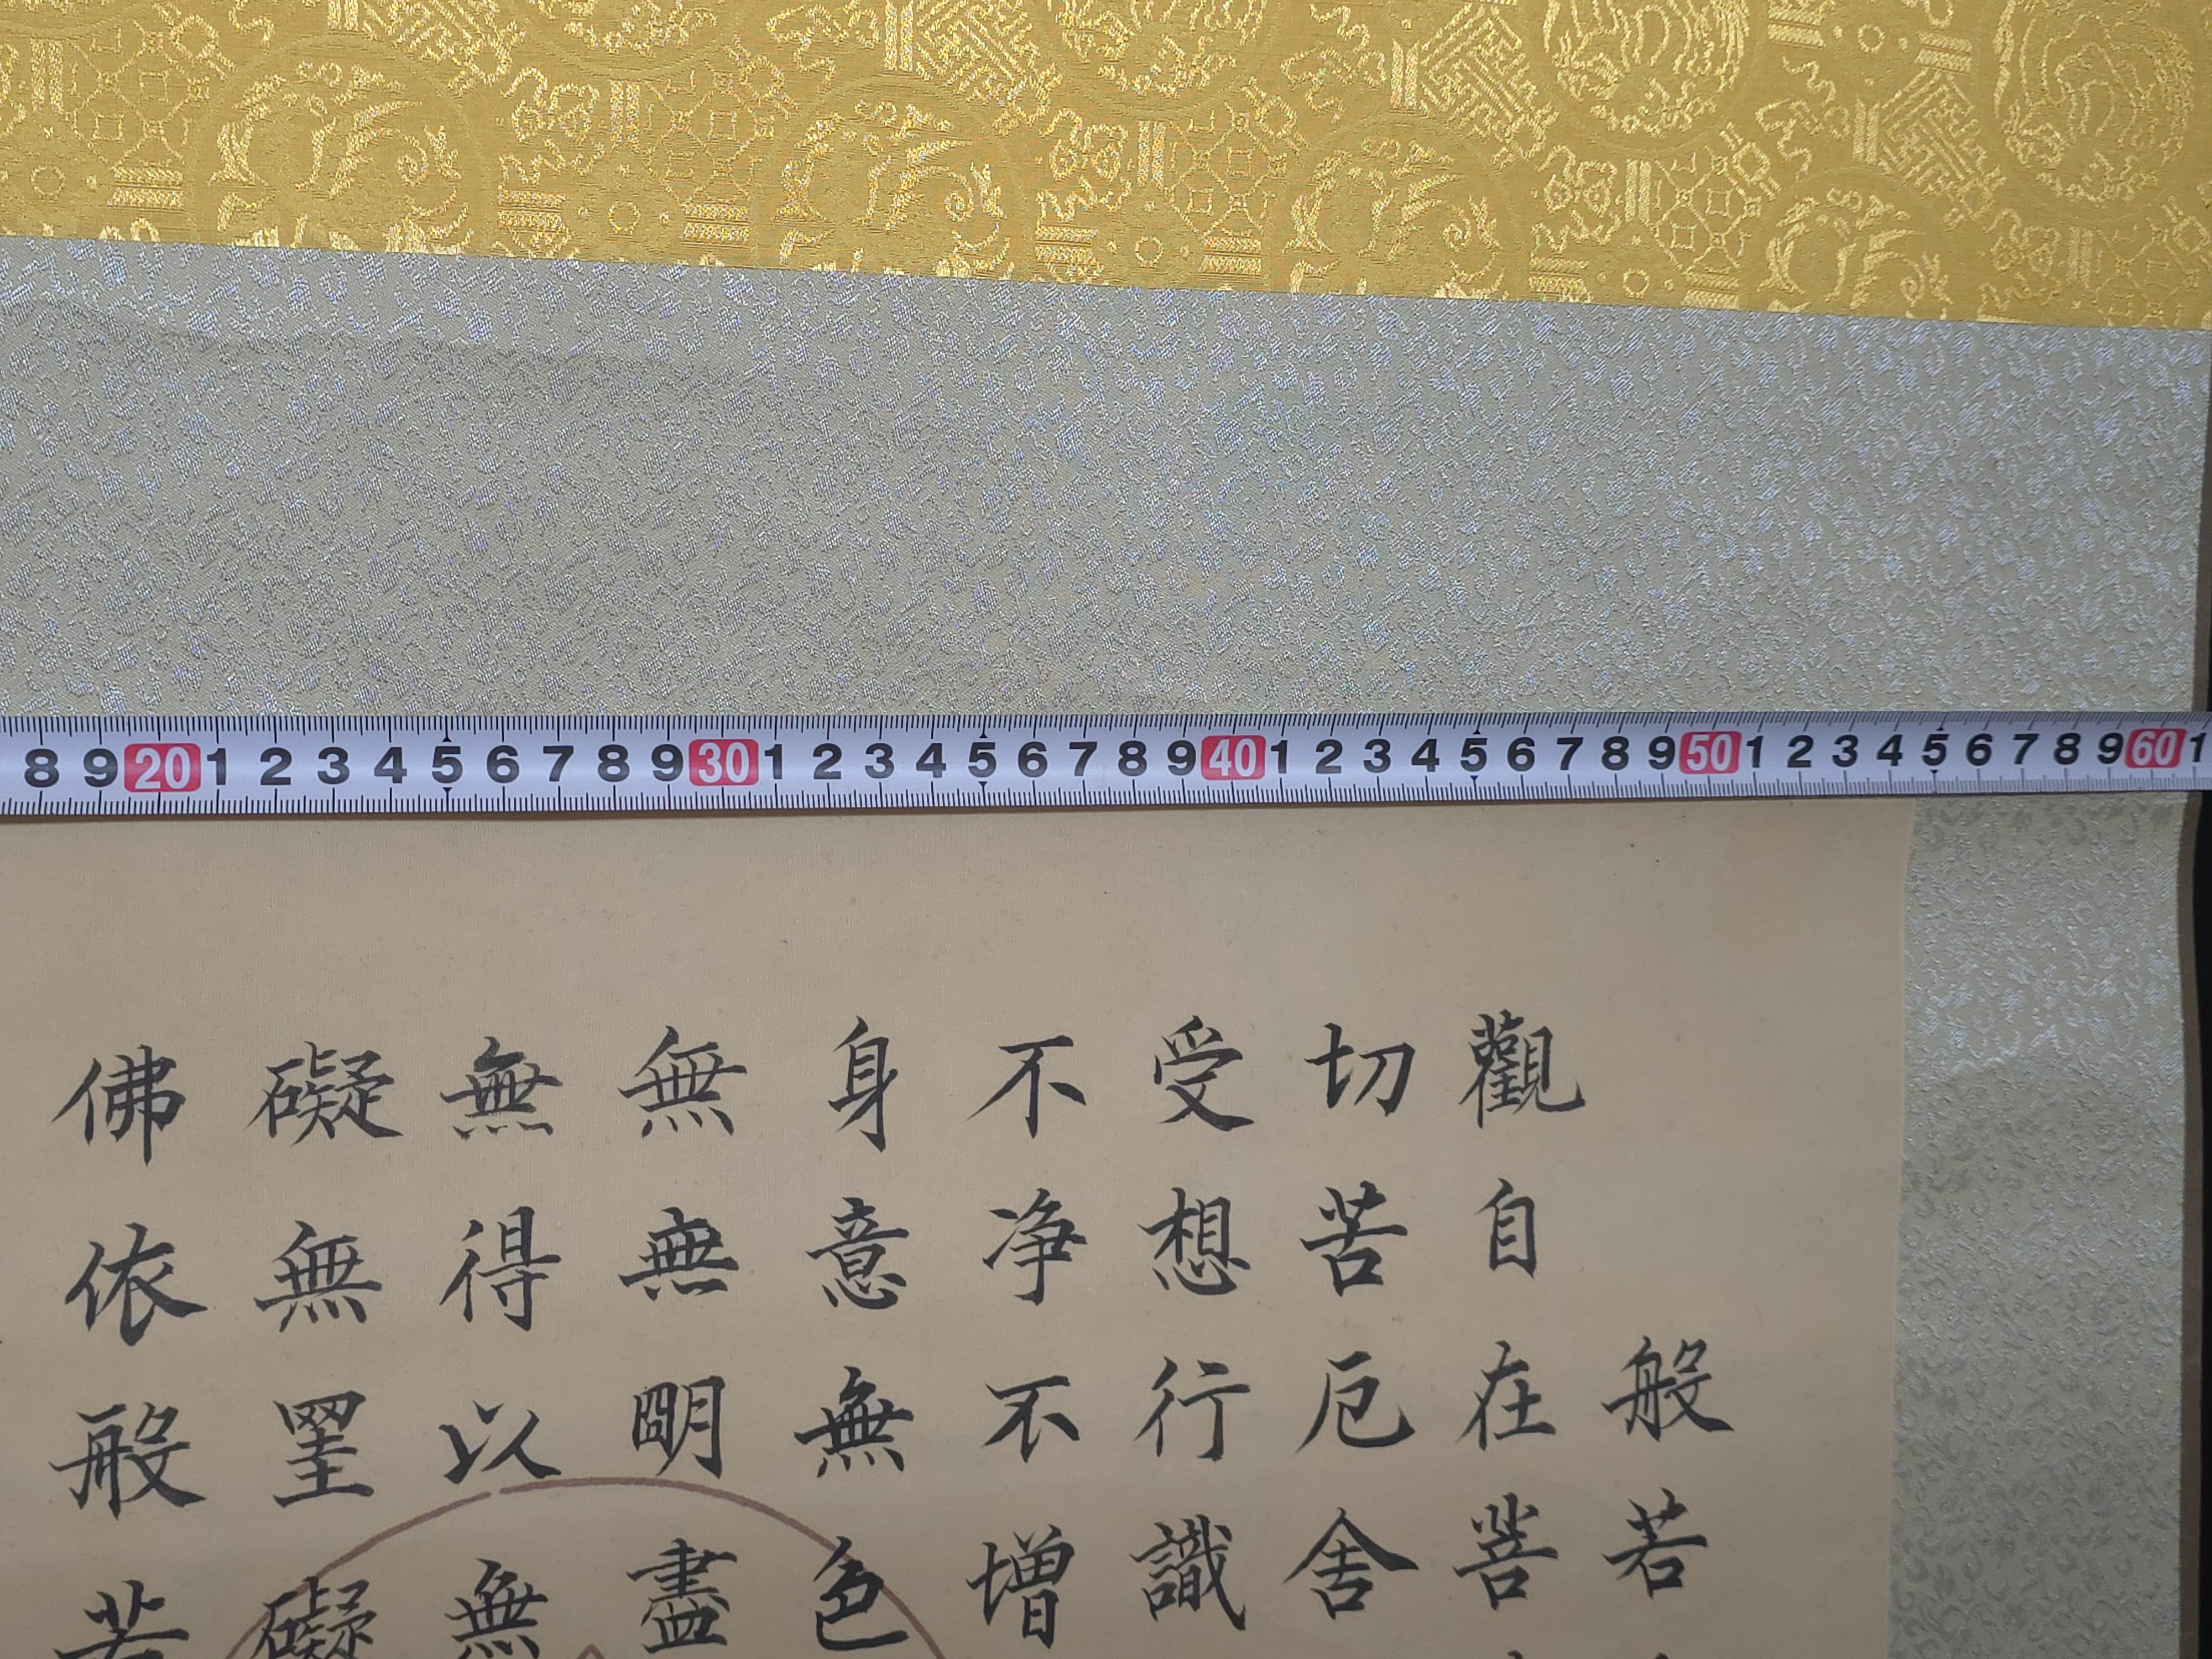 8 9 20 1 2 3 4 5 6 7 8 9 30 1 2 3 4 5 6 7 8 9 40 1 2 3 4 5 6 7 8 9 50 1 2 3 4 5 6 7 8 9 60 1
般若
觀自在菩
切苦厄舍
受想行識
不净不增
身意無色
無無明盡
無得以無
礙無罣礙
佛依般若